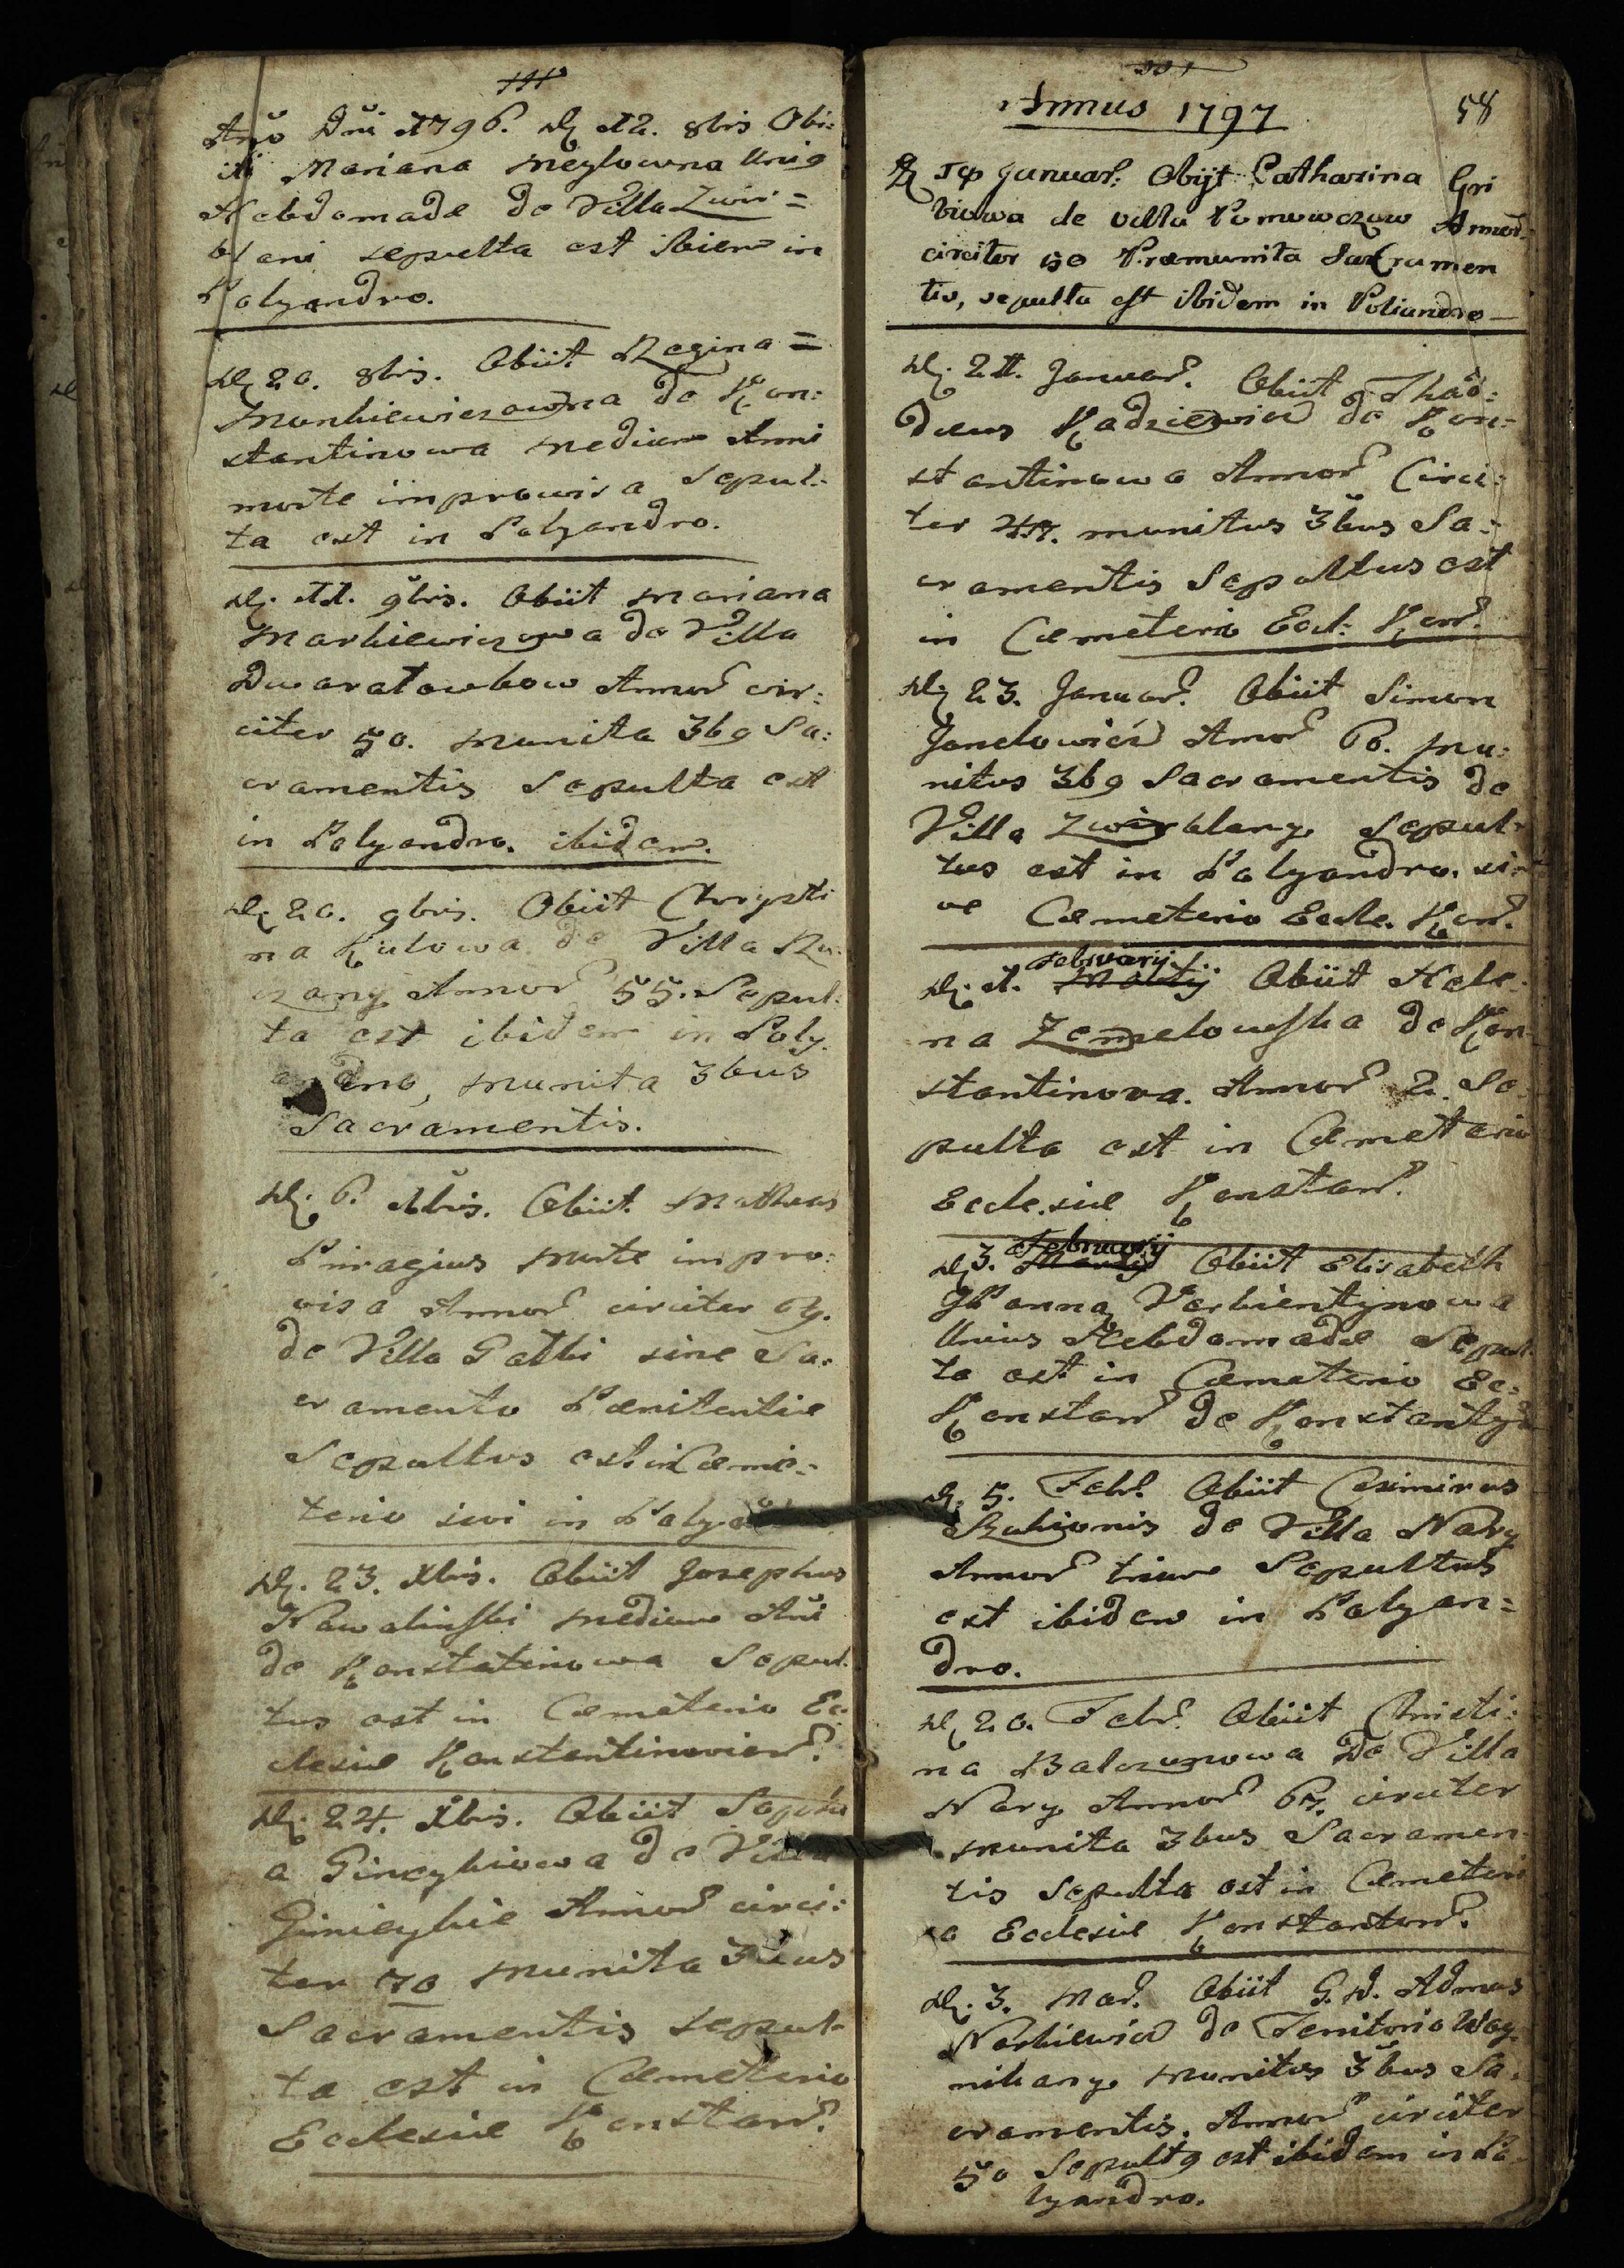 Año Dñi 1796. D. 12. 8bris Obi:
it Mariana Meylowna Uni9
Hebdomadæ de Villa Zwir=
blani sepulta est ibiem in
Polyandro.
D. 20. 8bris. Obiit Regina =
Munkiewiczowna de Kon:
stantinowa medium Anni
morte improwisa Sepul:
ta est in Polyandro.
D. 11. 9bris. Obiit Mariana
Markiewiczowa de Villa
Annor cir:
citer 50. munita 3b9 Sa:
cramentis Sepulta est
in Polyandro. ibidem.
D. 20. 9bris. Obiit Chrysti
na Kutowa de Villa Ru:
zany Annor 55. Sepul:
ta est ibidem in Poly
andro, munita 3bus
Sacramentis.
D. 6. Xbris. Obiit Matheus
Piragius morte impro:
visa Annor circiter
de Villa Gatki sine Sa:
cramento Pœnitentiæ
Sepultus est in Cæmi:
terio sivi in
D. 23. Xbris. Obiit Josephus
Nawalinski medium Añi
de Konstatinowa Sepul
tus est in Cæmeterio Ec
clesiæ Konstantinovien
D. 24. Xbris. Obiit Sophi
a Gineykiowa de Villa
Ginieykie Annor circi:
ter 70 munita 3bus
Sacramentis sepul-
ta est in Cæmeterio
Eclesiæ Konstan
Annus 1797 58
D 19 Januar: Obijt Catharina Gri
biowa de villa Annor
circiter 50 Præmunita Sacramen
tis, sepulta est ibidem in Poliandro
D. 21. Januar. Obiit Thad:
dæus Radziewicz de Kon:
stantinowa Annor Circi:
ter 47. munitus 3bus Sa:
cramentis Sepultus est
in Cæmeterio Ecl: Kon
D. 23. Januar. Obiit Simon
Janelowicz Annor 60. mu:
nitus 3b9 Sacramentis de
Villa Zwirblany Sepul-
tus est in Polyandro. si-
ve Cæmeterio Eccle. Kon
D. 1. Februarij Martij Obiit Hele:
na Zemelowska de Kon
stantinova. Annor 2. Se
pulta est in Cæmeterio
Ecclesiæ Konstan
D 3. Februarij Martij Obiit Elisabeth
Joanna Verbientynowa
Unius Hebdomadæ Sepul
ta est in Cæmeterio Ec:
Konstan de Konstantyn
D. 5. Febr. Obiit Casimirus
de Villa Nary
Annor trium Sepultus
est ibidem in Polyan=
dro.
D 20. Febr. Obiit Christi:
na Balczunowa De Villa
Nary Annor 67. circiter
munita 3bus Sacramen
tis Sepulta est in Cæmeteri
o Ecclesiæ Konstanton
D. 3. Mar. Obiit G. D. Admus
Narkiewicz de Territorio Way
nikany munitus 3bus Sa:
cramentis. Annor circiter
50 Sepult9 est ibidem in Po
lyandro.